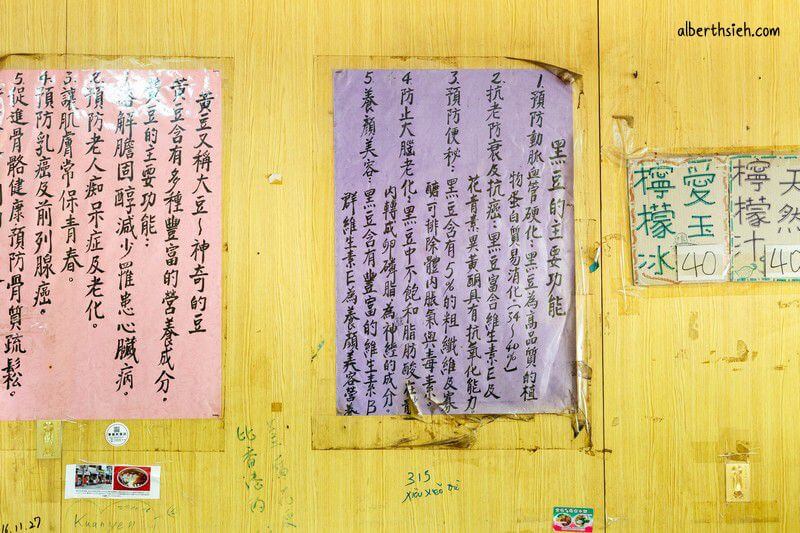 alberthsieh.com
黃豆又稱大豆~神奇的豆
黃豆含有多種豐富的營養成分。
黃豆的主要功能：
溶解膽固醇減少罹患心臟病。
2.預防老人痴呆症及老化。
3.讓肌膚常保青春。
4.預防乳癌及前列腺癌。
5.促進骨骼健康預防骨質疏鬆。
黑豆的主要功能
1.預防動脈血管硬化：黑豆為高品質的植
物蛋白質易消化(34~40%)
2.抗老防衰及抗癌：黑豆富含維生素E及
花青素異黃酮具有抗氧化能力
3.預防便秘：黑豆含有5%的粗纖維及寡
醣可排除體內脹氣與毒素。
4.防止大腦老化：黑豆中不飽和脂肪酸在
內轉成卵磷脂為神經的成分。
5.養顏美容：黑豆含有豐富的維生素B
群維生素E為養顏美容營養
愛玉
檸檬冰
40
天然
檸檬汁
40
比香港
315
16.11.27
Kuanyen